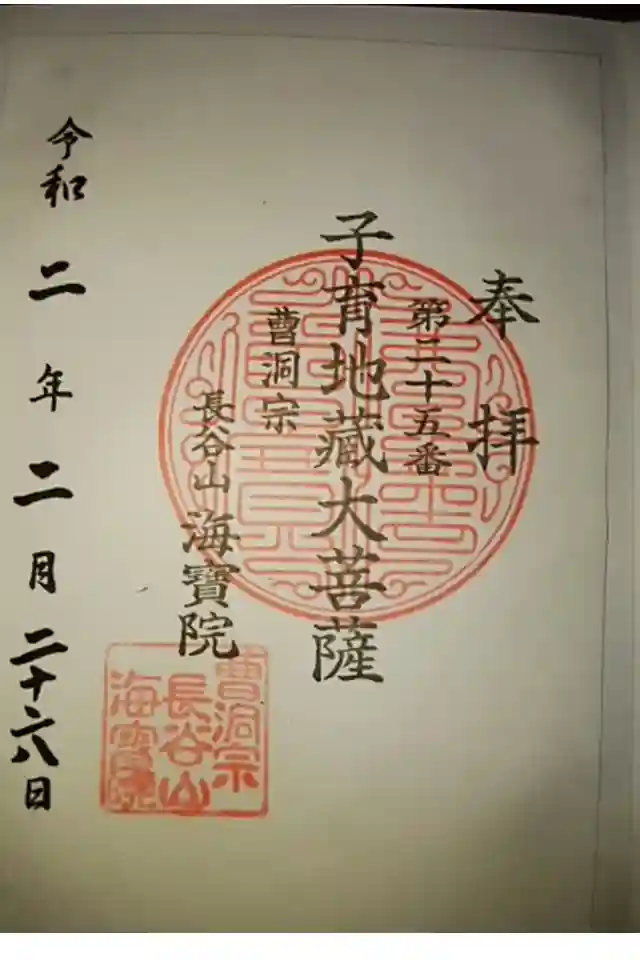 奉拝
第三十五番
子育地藏大菩薩
曹洞宗
長谷山海寶院
曹洞宗
長谷山
海寶院
令和二年二月二十六日